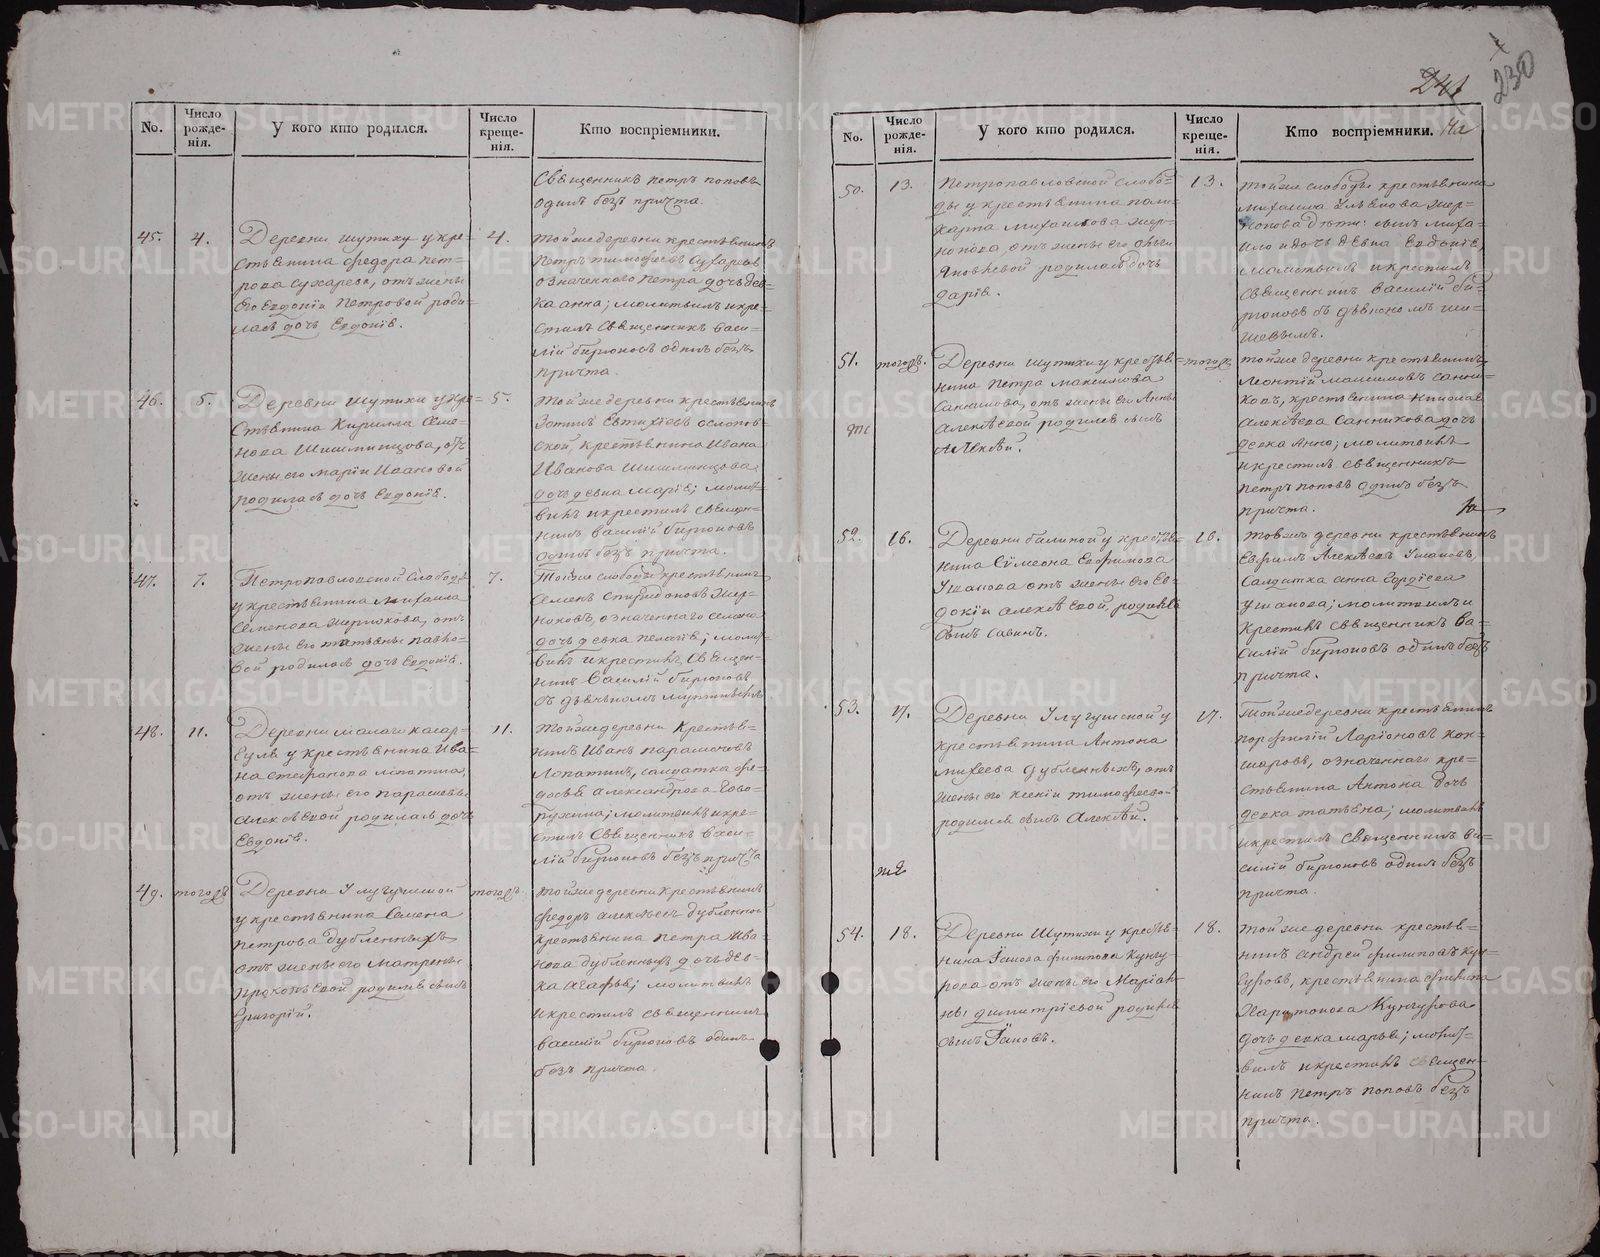 No.
Число рожде-нія.
У кого кто родился.
Число креще-нія.
Кто воспріемники.
Священникъ Петръ Поповъ
одинъ безъ причта.
45.
4.
Деревни Шутихи у кре=
стьянина Федора Пет=
рова Сухарева, отъ жены
его Евдокіи Петровой роди=
лась дочь Евдокія.
4.
Той же деревни крестьянинъ
Петръ Тимофеевъ Сухаревъ
означеннаго Петра дочь дев=
ка Анна; молитвилъ и кре=
стилъ священникъ Васи=
лій Бирюковъ одинъ безъ
причта.
46.
5.
Деревни Шутихи у кре=
стьянина Кирилла Семе=
нова Шишминцова, отъ
жены его Маріи Ивановой
родилась дочь Евдокія.
5.
Той же деревни крестьянинъ
крестьянина Ивана
Иванова Шишминцова
дочь девка Марія; молит=
вилъ и крестилъ священ=
никъ Василій Бирюковъ
одинъ безъ причта.
47.
7.
Петропавловской слободы
у крестьянина Михаила
Семенова отъ
жены его Татьяны Павло=
вой родилась дочь Евдокія.
7.
Той же слободы крестьянинъ
Семенъ Спиридоновъ
означеннаго Семена
дочь девка Пелагія; молит=
вилъ и крестилъ священ=
никъ Василій Бирюковъ
48.
11.
Деревни
у крестьянина Ива=
на Стефанова Лопатина,
отъ жены его Парасковьи
Алексѣевой родилась дочь
Евдокія.
11.
Той же деревни крестья=
нинъ Иванъ Парамоновъ
Лопатинъ, салдатка Фе=
досья Александрова
молитвилъ и кре=
стилъ священникъ Васи=
лій Бирюковъ безъ причта
49.
тогожъ
Деревни Улугушской
у крестьянина Семена
Петрова Дубленныхъ
отъ жены его Матрены
Прокопьевой родился сынъ
Григорій.
тогожъ.
Той же деревни крестьянинъ
Федоръ Алексѣевъ Дубленной
крестьянина Петра Ива=
нова Дубленныхъ дочь дев=
ка Агафья; молитвилъ
и крестилъ священникъ
Василій Бирюковъ одинъ
безъ причта.
241
230
No.
Число рожде-нія.
У кого кто родился.
Число креще-нія.
Кто воспріемники.
50.
13.
Петропавловской слобо=
ды у крестьянина Поли=
карпа Михайлова
отъ жены его
Яковлевой родилась дочь
Дарія.
13.
Той же слободы крестьянина
Михаила
дѣти: сынъ Миха=
ило и дочь девка Евдокія,
молитвилъ и крестилъ
священникъ Василій Би=
рюковъ съ дьячкомъ Ши=
51.
тогожъ.
Деревни Шутихи у крестья=
нина Петра Максимова
Санникова, отъ жены его Анны
Алексѣевой родился сынъ
Алексѣй.
тогожъ
Той же деревни крестьянинъ
Леонтій Максимовъ Санни=
ковъ, крестьянина Николая
Алексѣева Санникова дочь
девка Анна; молитвилъ
и крестилъ священникъ
Петръ Поповъ одинъ безъ
причта.
52.
16.
Деревни у крестья=
нина Сѵмеона Евфимова
Ушакова отъ жены его Ев=
докіи Алексѣевой, родился
сынъ Савинъ.
16.
деревни крестьянинъ
Евфимъ Алексѣевъ Ушаковъ,
салдатка Анна Гордѣева
Ушакова; молитвилъ и
крестилъ священникъ Ва=
силій Бирюковъ одинъ безъ
причта.
53.
17.
Деревни Улугушской у
крестьянина Антона
Михеева Дубленныхъ, отъ
жены его Ксеніи Тимофеевой
родился сынъ Алексѣй.
17.
Той же деревни крестьянинъ
Порфирій Ларіоновъ Кок=
шаровъ, означеннаго кре=
стьянина Антона дочь
девка Татьяна; молитвилъ
и крестилъ священникъ Ва=
силій Бирюковъ одинъ безъ
причта.
54.
18.
Деревни Шутихи у крестья=
нина Іакова Филипова Кунгу=
рова отъ жены его Маріан=
ны Димитріевой родился
сынъ Іаковъ.
18.
Той же деревни крестья=
нинъ Андрей Филиповъ Кун=
гуровъ, крестьянина
Харитонова Кунгурова
дочь девка Марья; молит=
вилъ и крестилъ священ=
никъ Петръ Поповъ безъ
причта.
METRIKI.GASO-URAL.RU